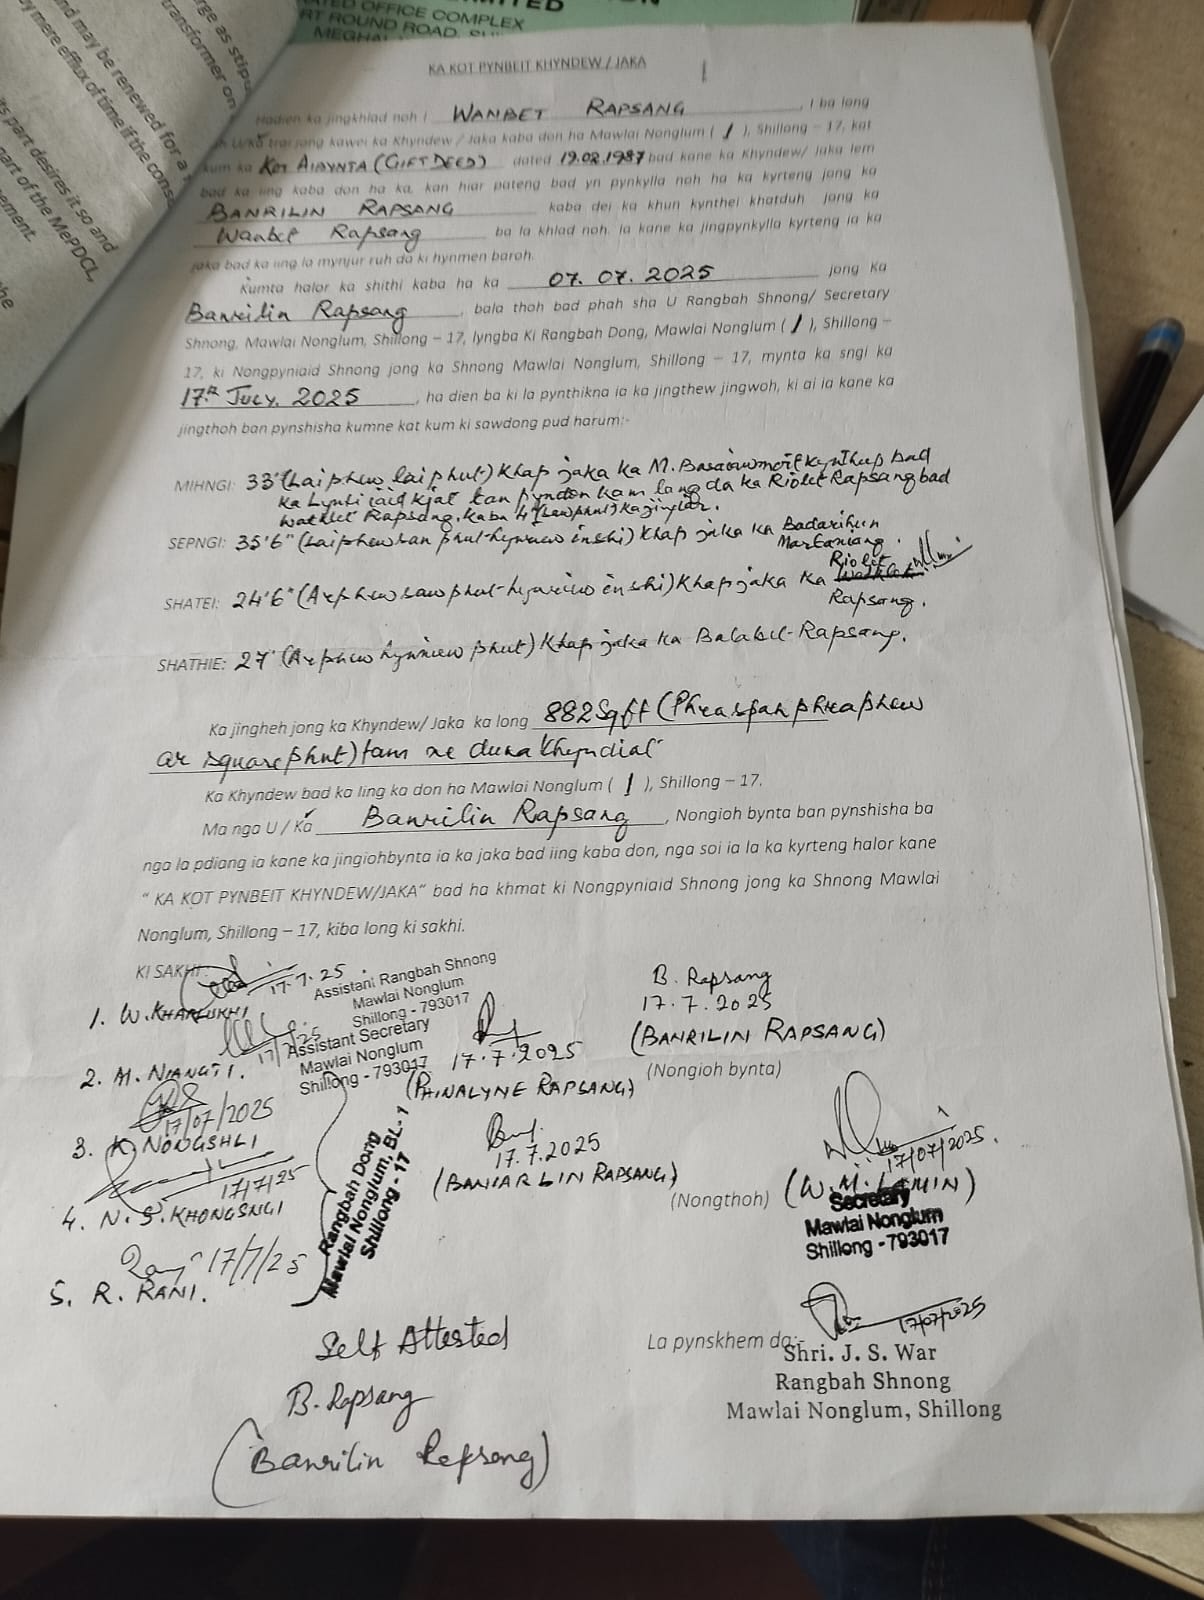 rge as stipu
transformer on
and may be renewed for a
by mere efflux of time if the cons
ts part desires it so and
part of the MePDCL,
ement.
he
MITED
ATED OFFICE COMPLEX
RT ROUND ROAD, SH
MEGHAL
KA KOT PYNBEIT KHYNDEW / JAKA
Hadien ka jingkhlad noh i WANBET RAPSANG, i ba long
U/Ka trai jong kawei ka Khyndew / Jaka kaba don ha Mawlai Nonglum ( 1 ), Shillong – 17, kat
kum ka KOT AIBYNTA (GIFT DEED) dated 19.02.1987 bad kane ka Khyndew/ Jaka lem
bad ka iing kaba don ha ka, kan hiar pateng bad yn pynkylla noh ha ka kyrteng jong ka
BANRILIN RAPSANG kaba dei ka khun kynthei khatduh jong ka
Wanbet Rapsang ba la khlad noh. Ia kane ka jingpynkylla kyrteng ia ka
jaka bad ka iing la mynjur ruh da ki hynmen baroh.
Kumta halor ka shithi kaba ha ka 07. 07. 2025 jong Ka
Banrilin Rapsang, bala thoh bad phah sha U Rangbah Shnong/ Secretary
Shnong, Mawlai Nonglum, Shillong – 17, lyngba Ki Rangbah Dong, Mawlai Nonglum ( 1 ), Shillong –
17, ki Nongpyniaid Shnong jong ka Shnong Mawlai Nonglum, Shillong – 17, mynta ka sngi ka
17th July. 2025, ha dien ba ki la pynthikna ia ka jingthew jingwoh, ki ai ia kane ka
jingthoh ban pynshisha kumne kat kum ki sawdong pud harum:-
MIHNGI: 33' (Laiphew lai phut) Khap jaka ka M. Basaiawmoit Kynthup bad
ka Lynti iaid kjat tan pyndon kam lang da ka Riolit Rapsang bad
Wathlet Rapsang. kaba 4' (saw phut) ka jinglar.
SEPNGI: 35'6" (Laiphew san phut-hynriew inshi) Khap jaka ka Badarihun
Martaniang.
SHATEI: 24'6" (Arphew saw phut-hynriew inshi) Khap jaka ka Riolit
Rapsang.
SHATHIE: 27' (Arphew hynniew phut) Khap jaka ka Balabet Rapsang.
Ka jingheh jong ka Khyndew/ Jaka ka long 882 Sqft (Phraspah phraphew
ar square phut) tam ne duna khyndiat
Ka Khyndew bad ka Iing ka don ha Mawlai Nonglum ( 1 ), Shillong – 17.
Ma nga U / Ka Banrilin Rapsang, Nongioh bynta ban pynshisha ba
nga la pdiang ia kane ka jingiohbynta ia ka jaka bad iing kaba don, nga soi ia la ka kyrteng halor kane
“ KA KOT PYNBEIT KHYNDEW/JAKA” bad ha khmat ki Nongpyniaid Shnong jong ka Shnong Mawlai
Nonglum, Shillong – 17, kiba long ki sakhi.
KI SAKHI:
17.7.25
Assistant Rangbah Shnong
Mawlai Nonglum
Shillong - 793017
1. W. KHARLUKHI
17/7/25
Assistant Secretary
Mawlai Nonglum
Shillong - 793017
2. M. NIANGTI.
17/07/2025
3. K. NONGSHLI
17/7/25
4. N. S. KHONGSNGI
17/7/25
5. R. RANI.
Rangbah Dong
Mawlai Nonglum, BL- 1
Shillong - 17
17.7.2025
(PHINALYNE RAPSANG)
17.7.2025
(BANIARLIN RAPSANG)
B. Rapsang
17.7.2025
(BANRILIN RAPSANG)
(Nongioh bynta)
17/07/2025.
(Nongthoh) (W. M. LAMIN)
Secretary
Mawlai Nonglum
Shillong - 793017
17/07/2025
La pynskhem da:-
Shri. J. S. War
Rangbah Shnong
Mawlai Nonglum, Shillong
Self Attested
B. Rapsang
(Banrilin Rapsang)